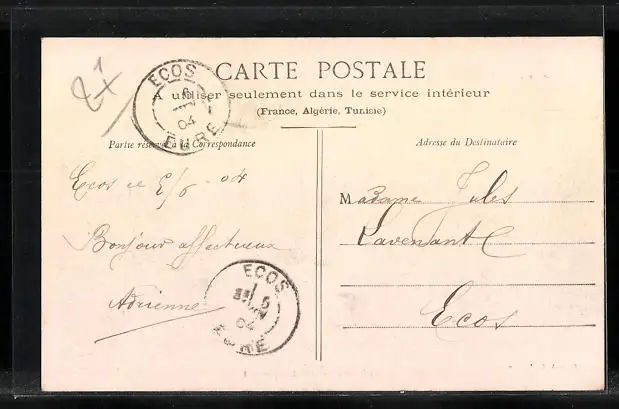 27
CARTE POSTALE
A utiliser seulement dans le service intérieur
(France, Algérie, Tunisie)
ECOS
04
EURE
Partie réservée à la Correspondance
Ecos ce 5/6 - 04
Bonjour affectueux
Adrienne
ECOS
5
04
EURE
Adresse du Destinataire
Madame Jules
Lavenant
Ecos